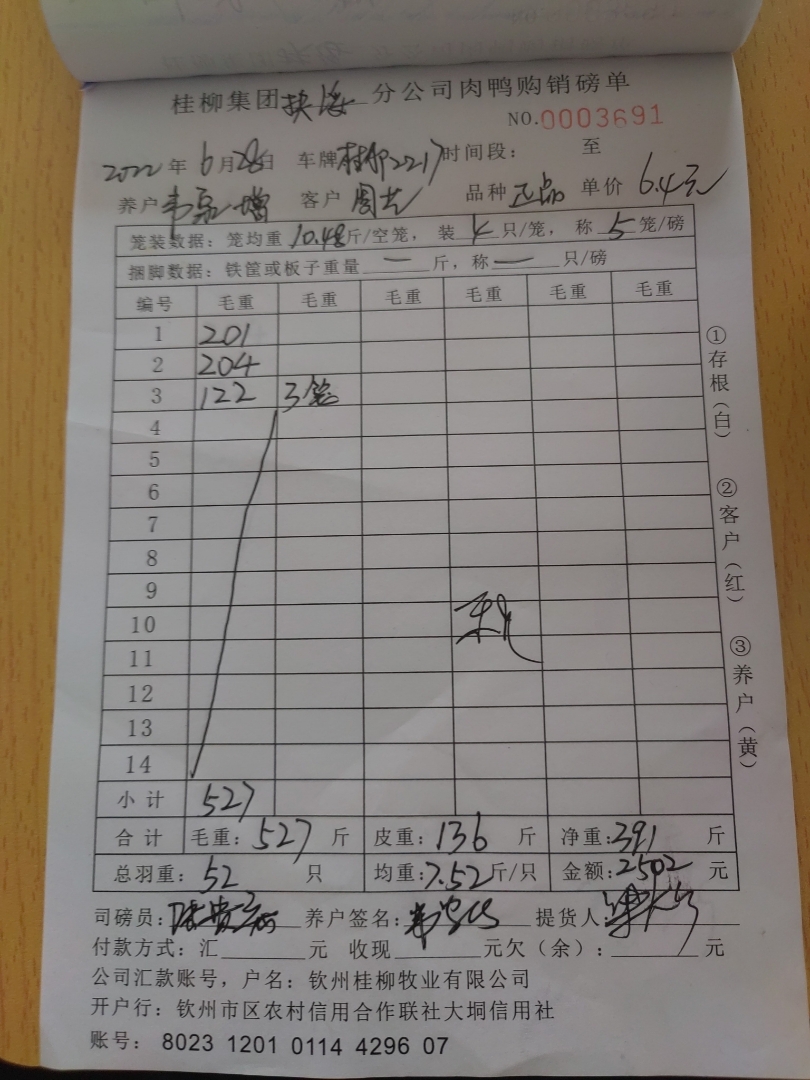 桂柳集团 分公司肉鸭购销磅单
NO.0003691
2022年6月28日 车牌桂柳2217时间段： 至
养户韦 增 客户周 品种正品 单价6.4元
笼装数据：笼均重10.48斤/空笼，装4只/笼，称5笼/磅
捆脚数据：铁筐或板子重量一斤，称一只/磅
编号 毛重 毛重 毛重 毛重 毛重 毛重
1 201
2 204
3 122 3笼
4
5
6
7
8
9
10
11
12
13
14
小计 527
合计 毛重：527斤 皮重：136斤 净重：391斤
总羽重：52只 均重：7.52斤/只 金额：2502元
司磅员： 养户签名： 提货人：
付款方式：汇 元 收现 元欠（余）： 元
公司汇款账号，户名：钦州桂柳牧业有限公司
开户行：钦州市区农村信用合作联社大垌信用社
账号： 8023 1201 0114 4296 07
①存根（白）
②客户（红）
③养户（黄）